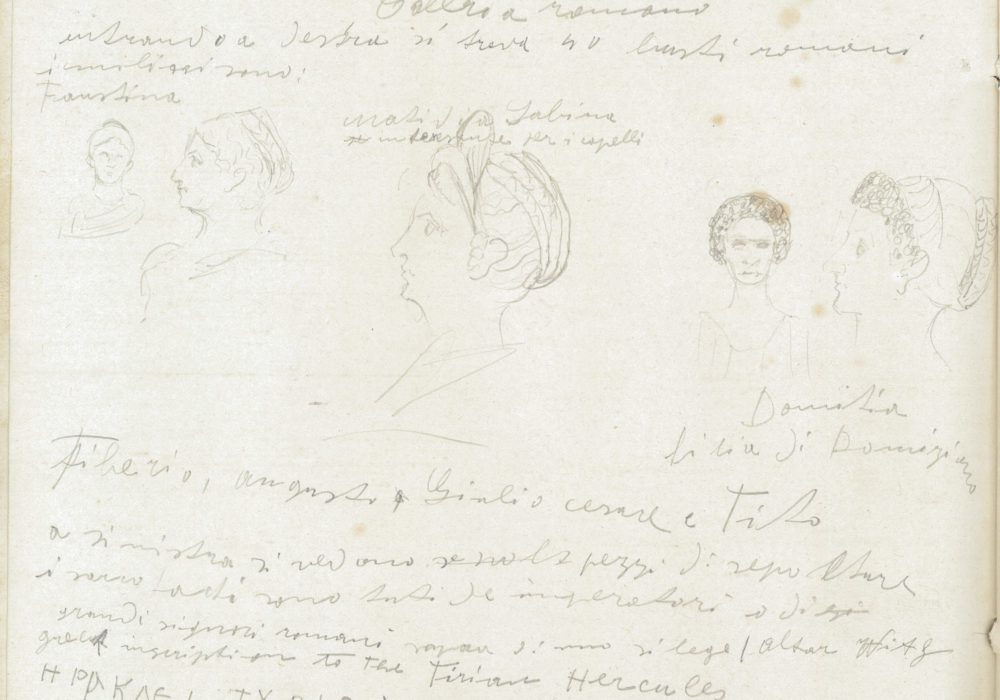 Galleria romano
entrando a destra si trova 40 busti romani
i migliori sono:
Faustina
Matidia Sabina
per i capelli
Domitia
filia di Domiziano
Tiberio, augusto, Giulio cesare e Tito
a sinistra si vedono pezzi di sepolture
i sono tuti de imperatori o di
grandi signori romani sopra di uno si lege / altar with
greek inscription to the Tirian Hercules